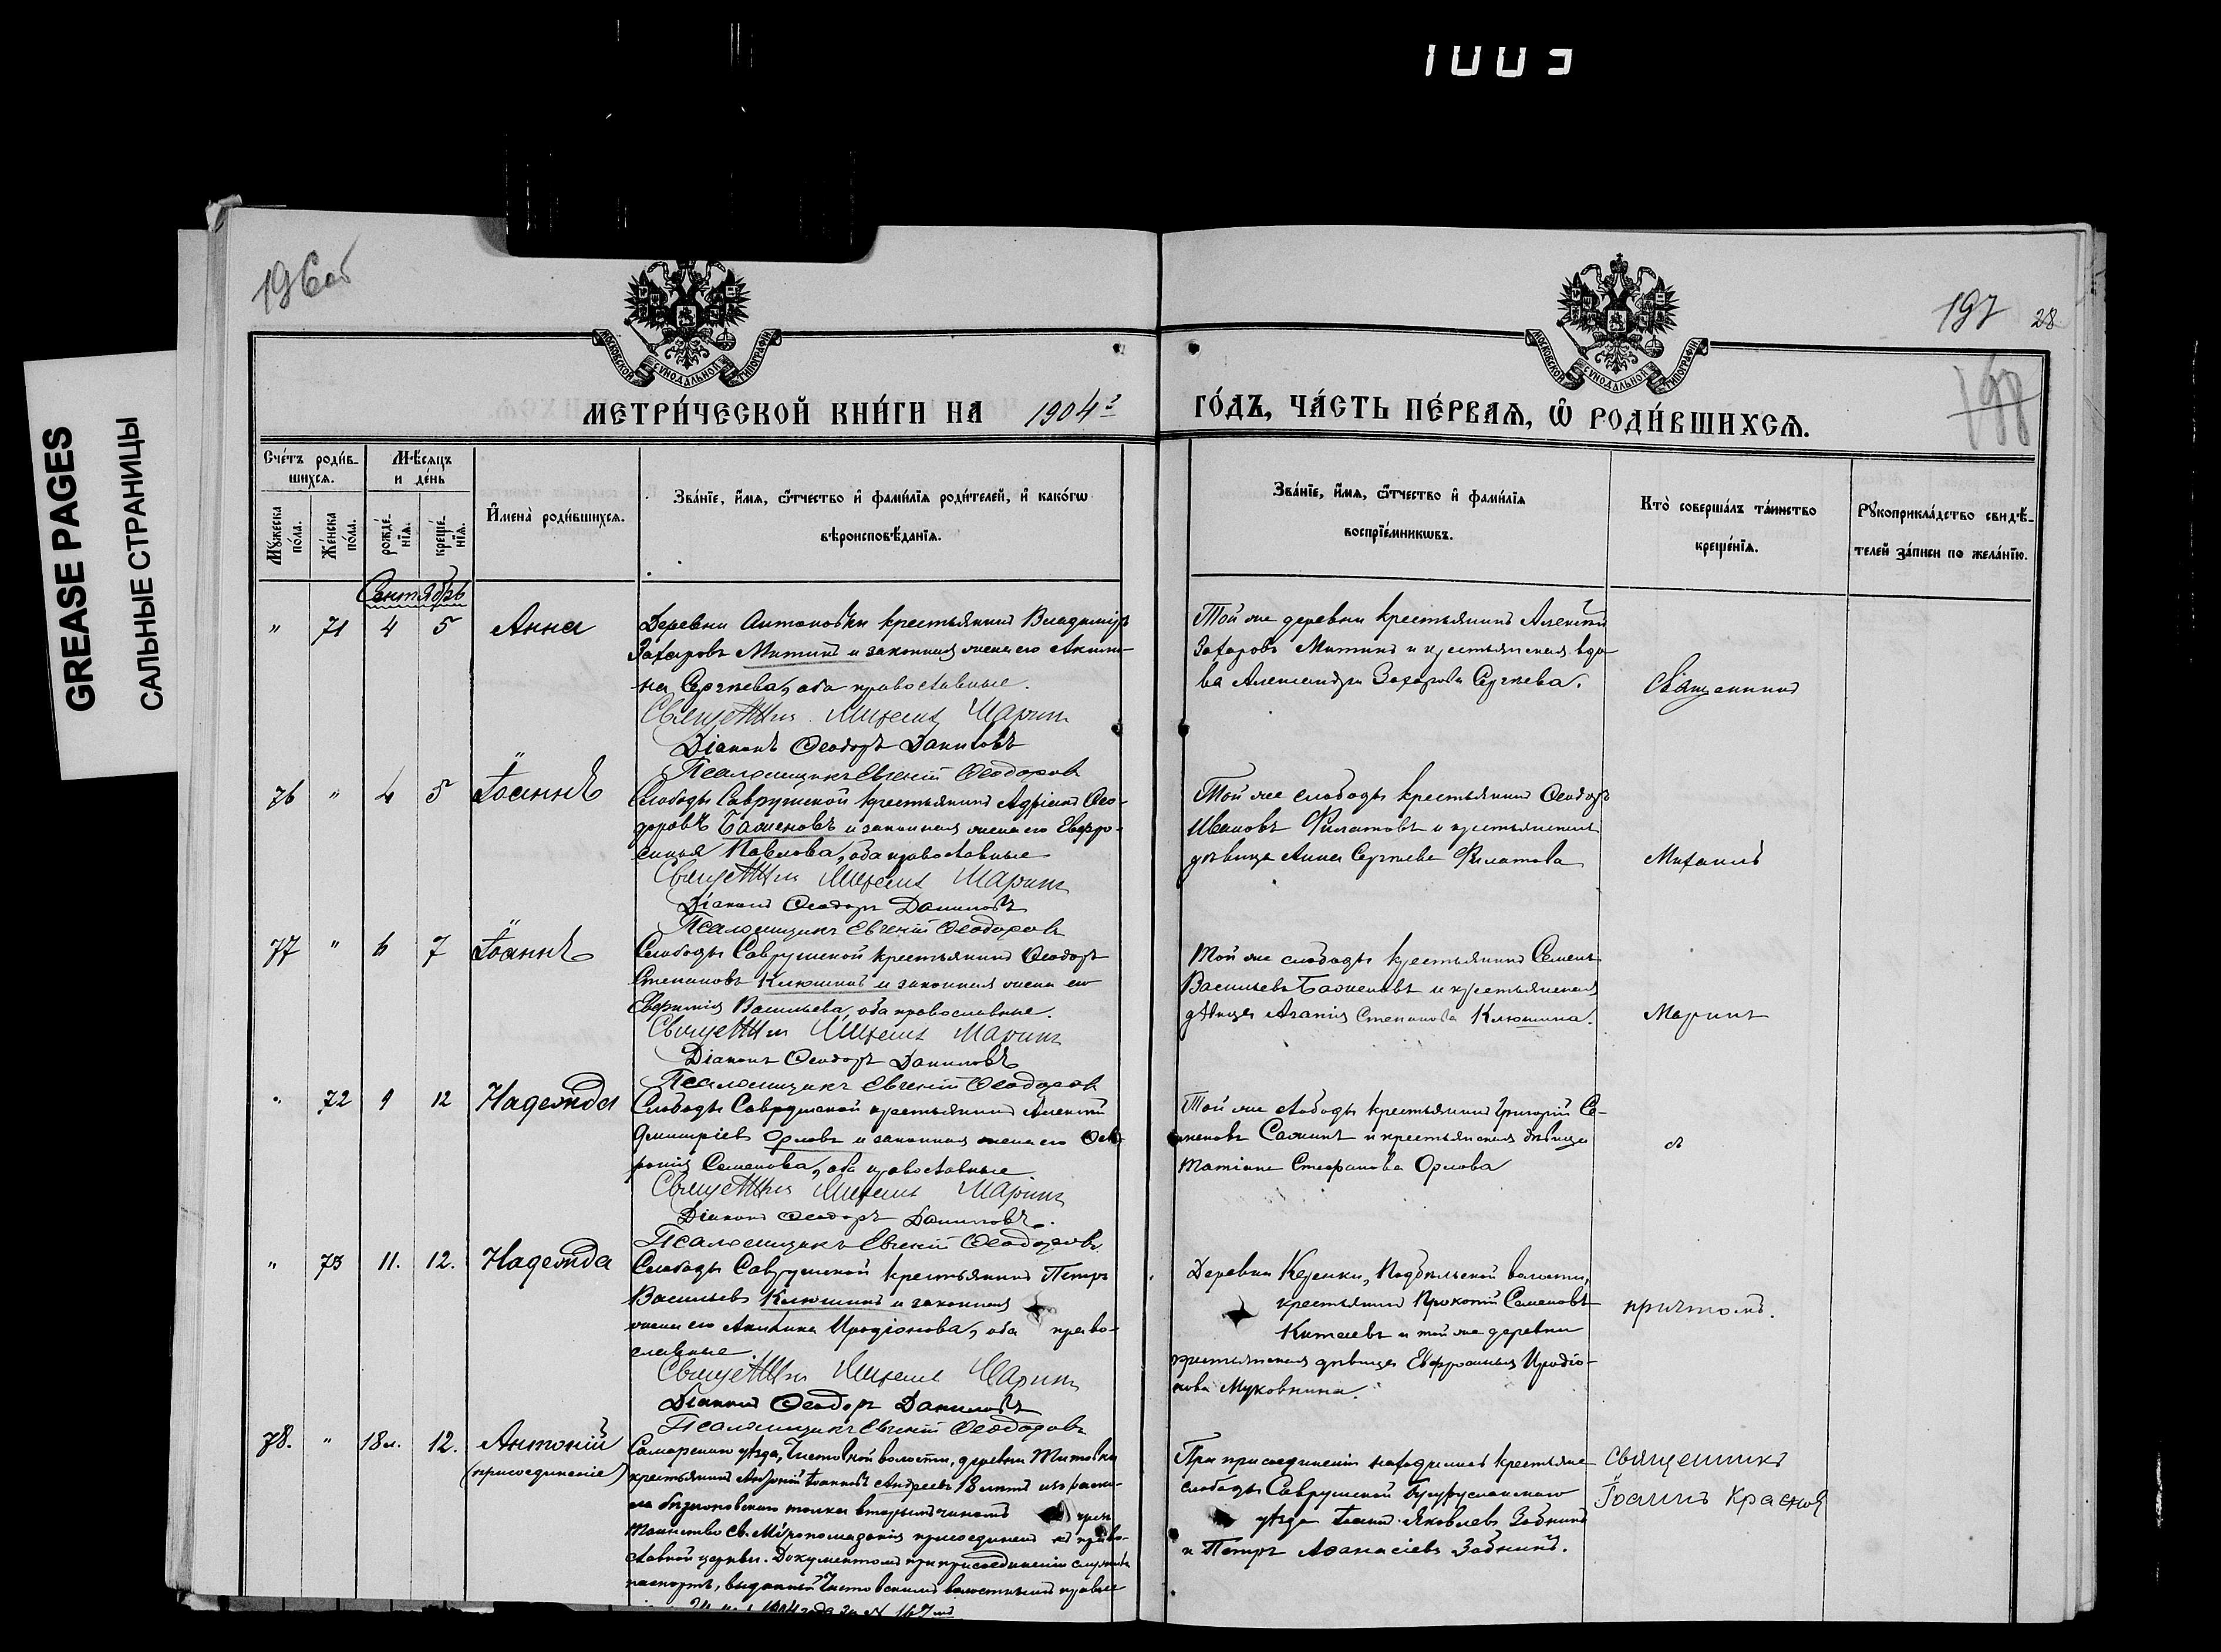 1003
GREASE PAGES
САЛЬНЫЕ СТРАНИЦЫ
196об
197 28
198
МОСКОВСКОЙ СѴНОДАЛЬНОЙ ТИПОГРАФІИ
МОСКОВСКОЙ СѴНОДАЛЬНОЙ ТИПОГРАФІИ
МЕТРИ́ЧЕСКОЙ КНИ́ГИ НА 1904 г
ГО́ДЪ, ЧА́СТЬ ПЕ́РВАѦ, Ѡ РОДИ́ВШИХСѦ.
Сче́тъ роди́в-
шихсѧ.
Мꙋ́жеска по́ла.
Же́нска по́ла.
Мѣ́сѧцъ
и де́нь
рожде́-нїѧ.
креще́-нїѧ.
И҆мена̀ роди́вшихсѧ.
Зва́нїе, и҆́мѧ, ѻ҆́тчество и҆ фами́лїѧ роди́телей, и҆ како́гѡ
вѣроисповѣ́данїѧ.
Зва́нїе, и҆́мѧ, ѻ҆́тчество и҆ фами́лїѧ
воспрїе́мникѡвъ.
Кто̀ соверша́лъ та́инство
креще́нїѧ.
Рꙋкоприкла́дство свидѣ́-
телей за́писи по жела́нїю.
Сентябрь
" 71 4 5 Анна
Деревни Антоновки крестьянинъ Владиміръ
Захаровъ Митинъ и законная жена его Акили-
на Сергѣева, оба православные.
Священникъ Михаилъ Маринъ
Діаконъ Ѳеодоръ Даниловъ
Псаломщикъ Евгеній Ѳеодоровъ
Той же деревни крестьянинъ Алексѣй
Захаровъ Митинъ и крестьянская вдо-
ва Александра Захарова Сергѣева.
Священникъ
76 " 4 5 Іоаннъ
Слободы Саврушской крестьянинъ Адріанъ Ѳео-
доровъ Баженовъ и законная жена его Евфро-
синія Павлова, оба православные
Священникъ Михаилъ Маринъ
Діаконъ Ѳеодоръ Даниловъ
Псаломщикъ Евгеній Ѳеодоровъ
Той же слободы крестьянинъ Ѳеодоръ
Ивановъ Филатовъ и крестьянская
дѣвица Анна Сергѣева Филатова
Михаилъ
77 " 6 7 Іоаннъ
Слободы Саврушской крестьянинъ Ѳеодоръ
Степановъ Клюшинъ и законная жена его
Евфимія Васильева, оба православные.
Священникъ Михаилъ Маринъ
Діаконъ Ѳеодоръ Даниловъ
Псаломщикъ Евгеній Ѳеодоровъ
Той же слободы крестьянинъ Семенъ
Васильевъ Баженовъ и крестьянская
дѣвица Агапія Степанова Клюшина.
Маринъ
" 72 9 12 Надежда
Слободы Саврушской крестьянинъ Алексѣй
Димитріевъ Орловъ и законная жена его Фев-
ронія Семенова, оба православные
Священникъ Михаилъ Маринъ
Діаконъ Ѳеодоръ Даниловъ.
Псаломщикъ Евгеній Ѳеодоровъ
Той же слободы крестьянинъ Григорій Се-
меновъ Сажинъ и крестьянская дѣвица
Татіана Стефанова Орлова
съ
" 73 11. 12. Надежда
Слободы Саврушской крестьянинъ Петръ
Васильевъ Клюшинъ и законная
жена его Акилина Иродіонова, оба право-
славные.
Священникъ Михаилъ Маринъ
Діаконъ Ѳеодоръ Даниловъ
Псаломщикъ Евгеній Ѳеодоровъ
Деревни Подбѣльской волости,
крестьянинъ Прокопій Семеновъ
Китаевъ и той же деревни
крестьянская дѣвица Евфросинія Иродіо-
нова Муковнина.
причтомъ.
78. " 18 л. 12. Антоній
(присоединеніе)
Самарскаго уѣзда, волости, деревни Титовки
крестьянинъ Антоній Іоанновъ Андреевъ 18 лѣтъ изъ раско-
ла толка вторымъ чиномъ чрезъ
Таинство Св. Мѵропомазанія присоединенъ къ право-
славной церкви. Документомъ при присоединеніи служитъ
паспортъ, выданный волостнымъ правле-
1904 года за № 167
При присоединеніи находились крестьяне
слободы Саврушской Бугурусланскаго
уѣзда Іоаннъ Яковлевъ Зобнинъ
и Петръ Аѳанасіевъ Зобнинъ.
Священникъ
Іоаннъ Красновъ